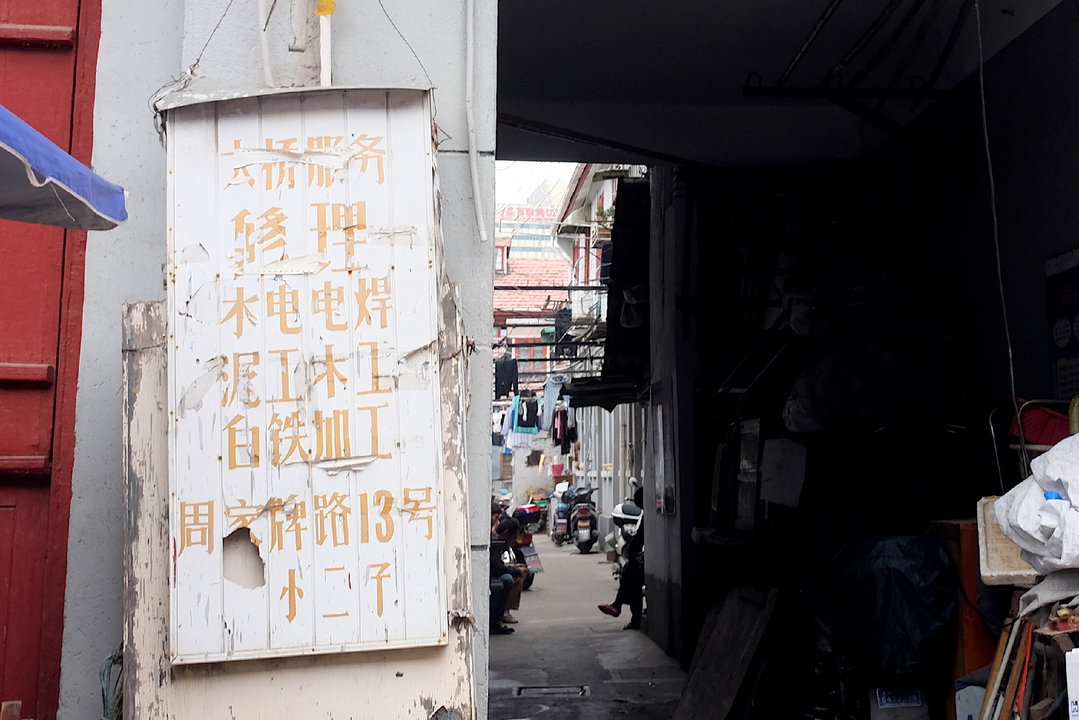 六桥服务
修理
木电电焊
泥工木工
白铁加工
周家牌路13号
小二子